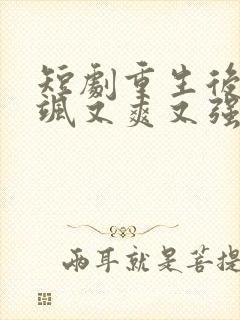 短劇重生後
颯又爽又强
両耳就是菩提